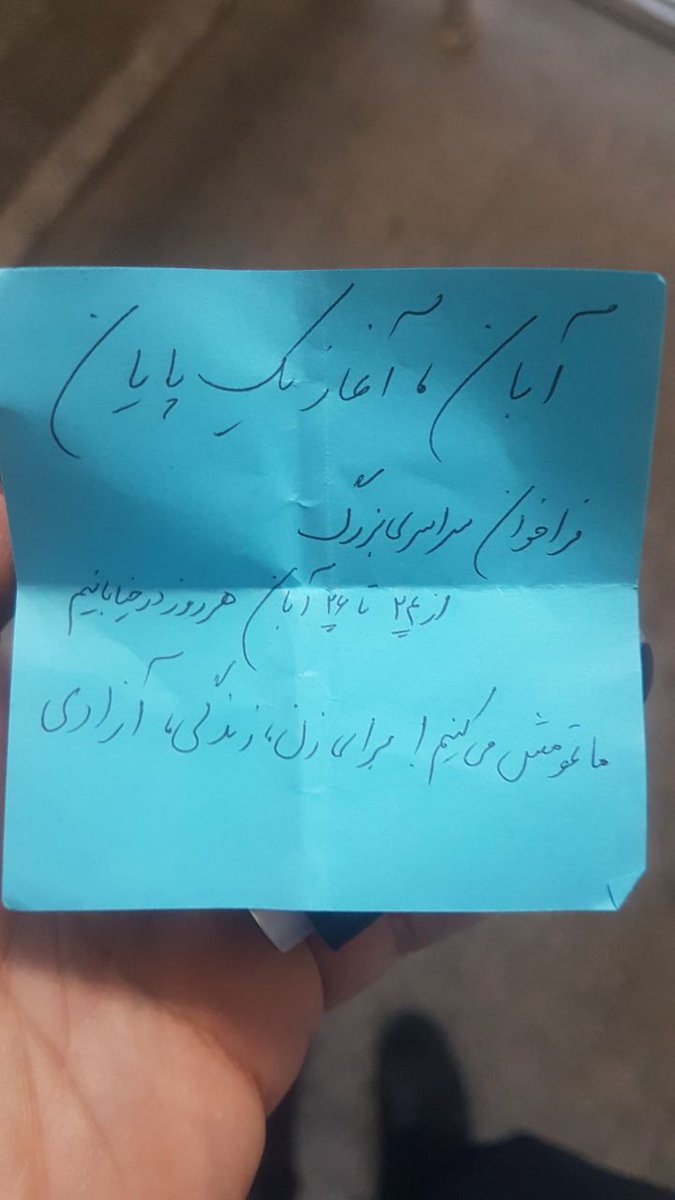 آبان، آغاز یک پایان
فراخوان سراسری بزرگ
از ۲۴ تا ۲۶ آبان هر روز در خیابانیم
ما تمومش می‌کنیم! برای زن، زندگی، آزادی